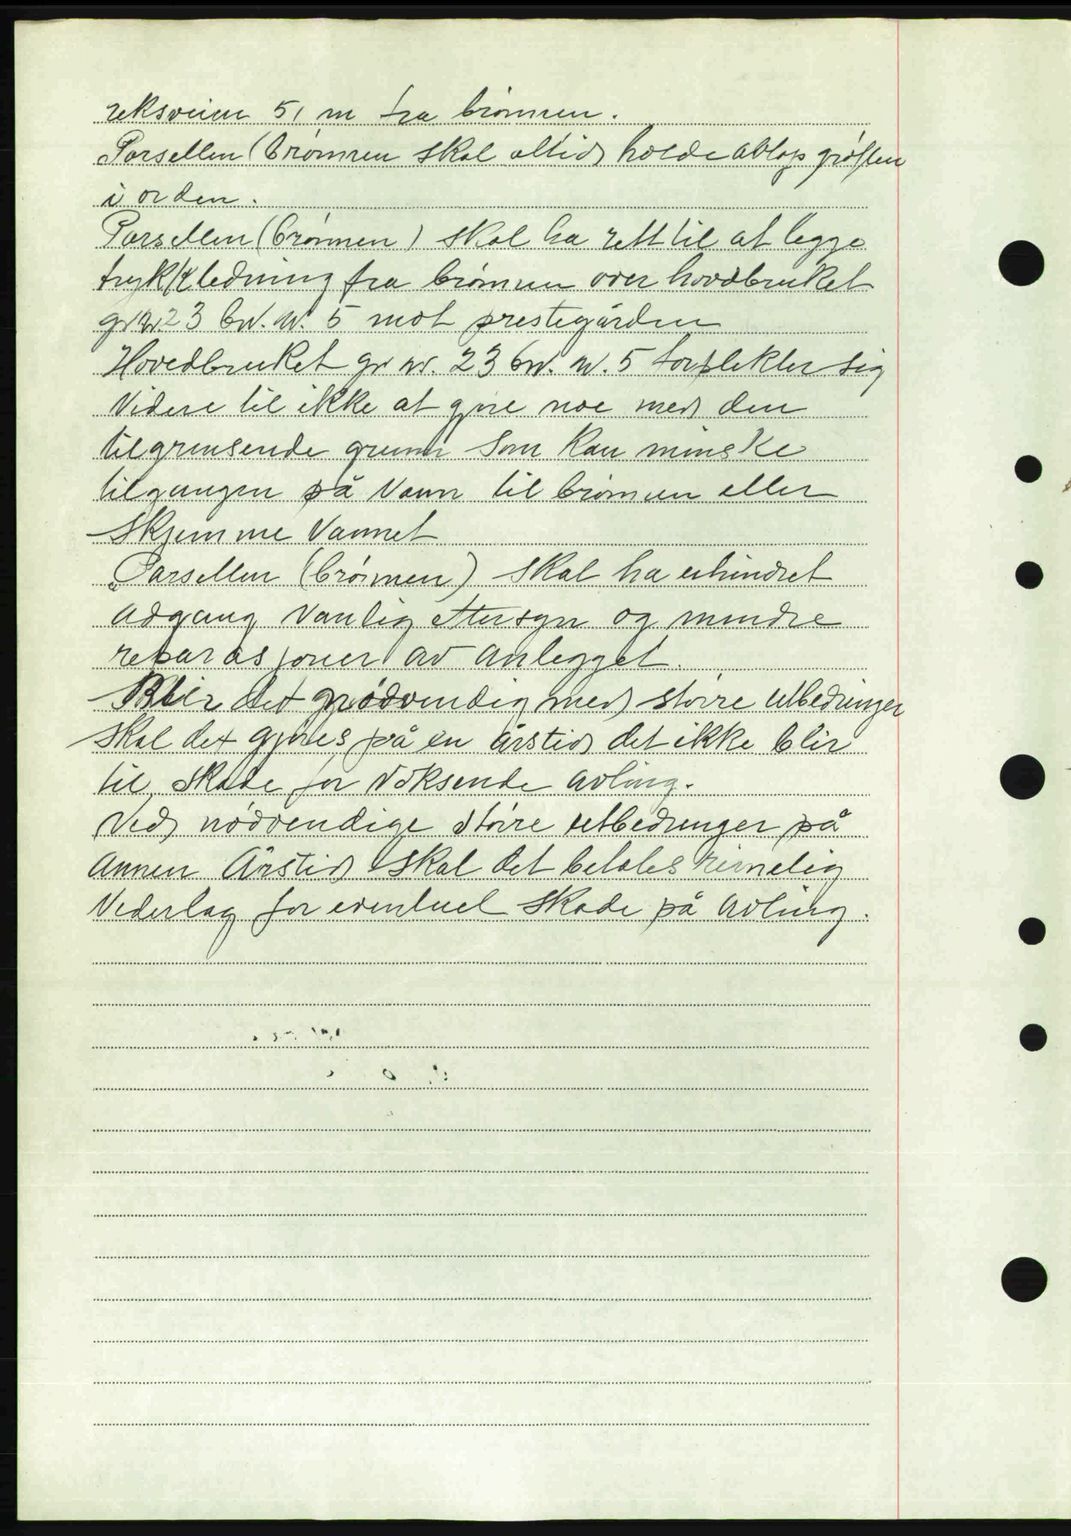 reksveien 51 m fra brönnen.
Parsellen (brønnen skal altid holde avløps grøften
i orden.
Parsellen (brönnen) skal ha rett til at legge
trykk ledning fra brönnen over hovedbruket
gr nr. 23 br. nr. 5 mot prestegården
Hovedbruket gr nr. 23 br. nr. 5 forplikter sig
videre til ikke at gjøre noe med den
tilgrensende grunn som kan minske
tilgangen på vann til brönnen eller
skjemme vannet
Parsellen (brönnen) skal ha uhindret
adgang vanlig ettersyn og mindre
reparasjoner av anlegget.
Blir det nødvendig med større utbedringer
skal det gjøres på en årstid det ikke blir
til skade for voksende avling.
Ved nødvendige større utbedringer på
annen årstid skal det betales rimelig
vederlag for eventuel skade på avling.